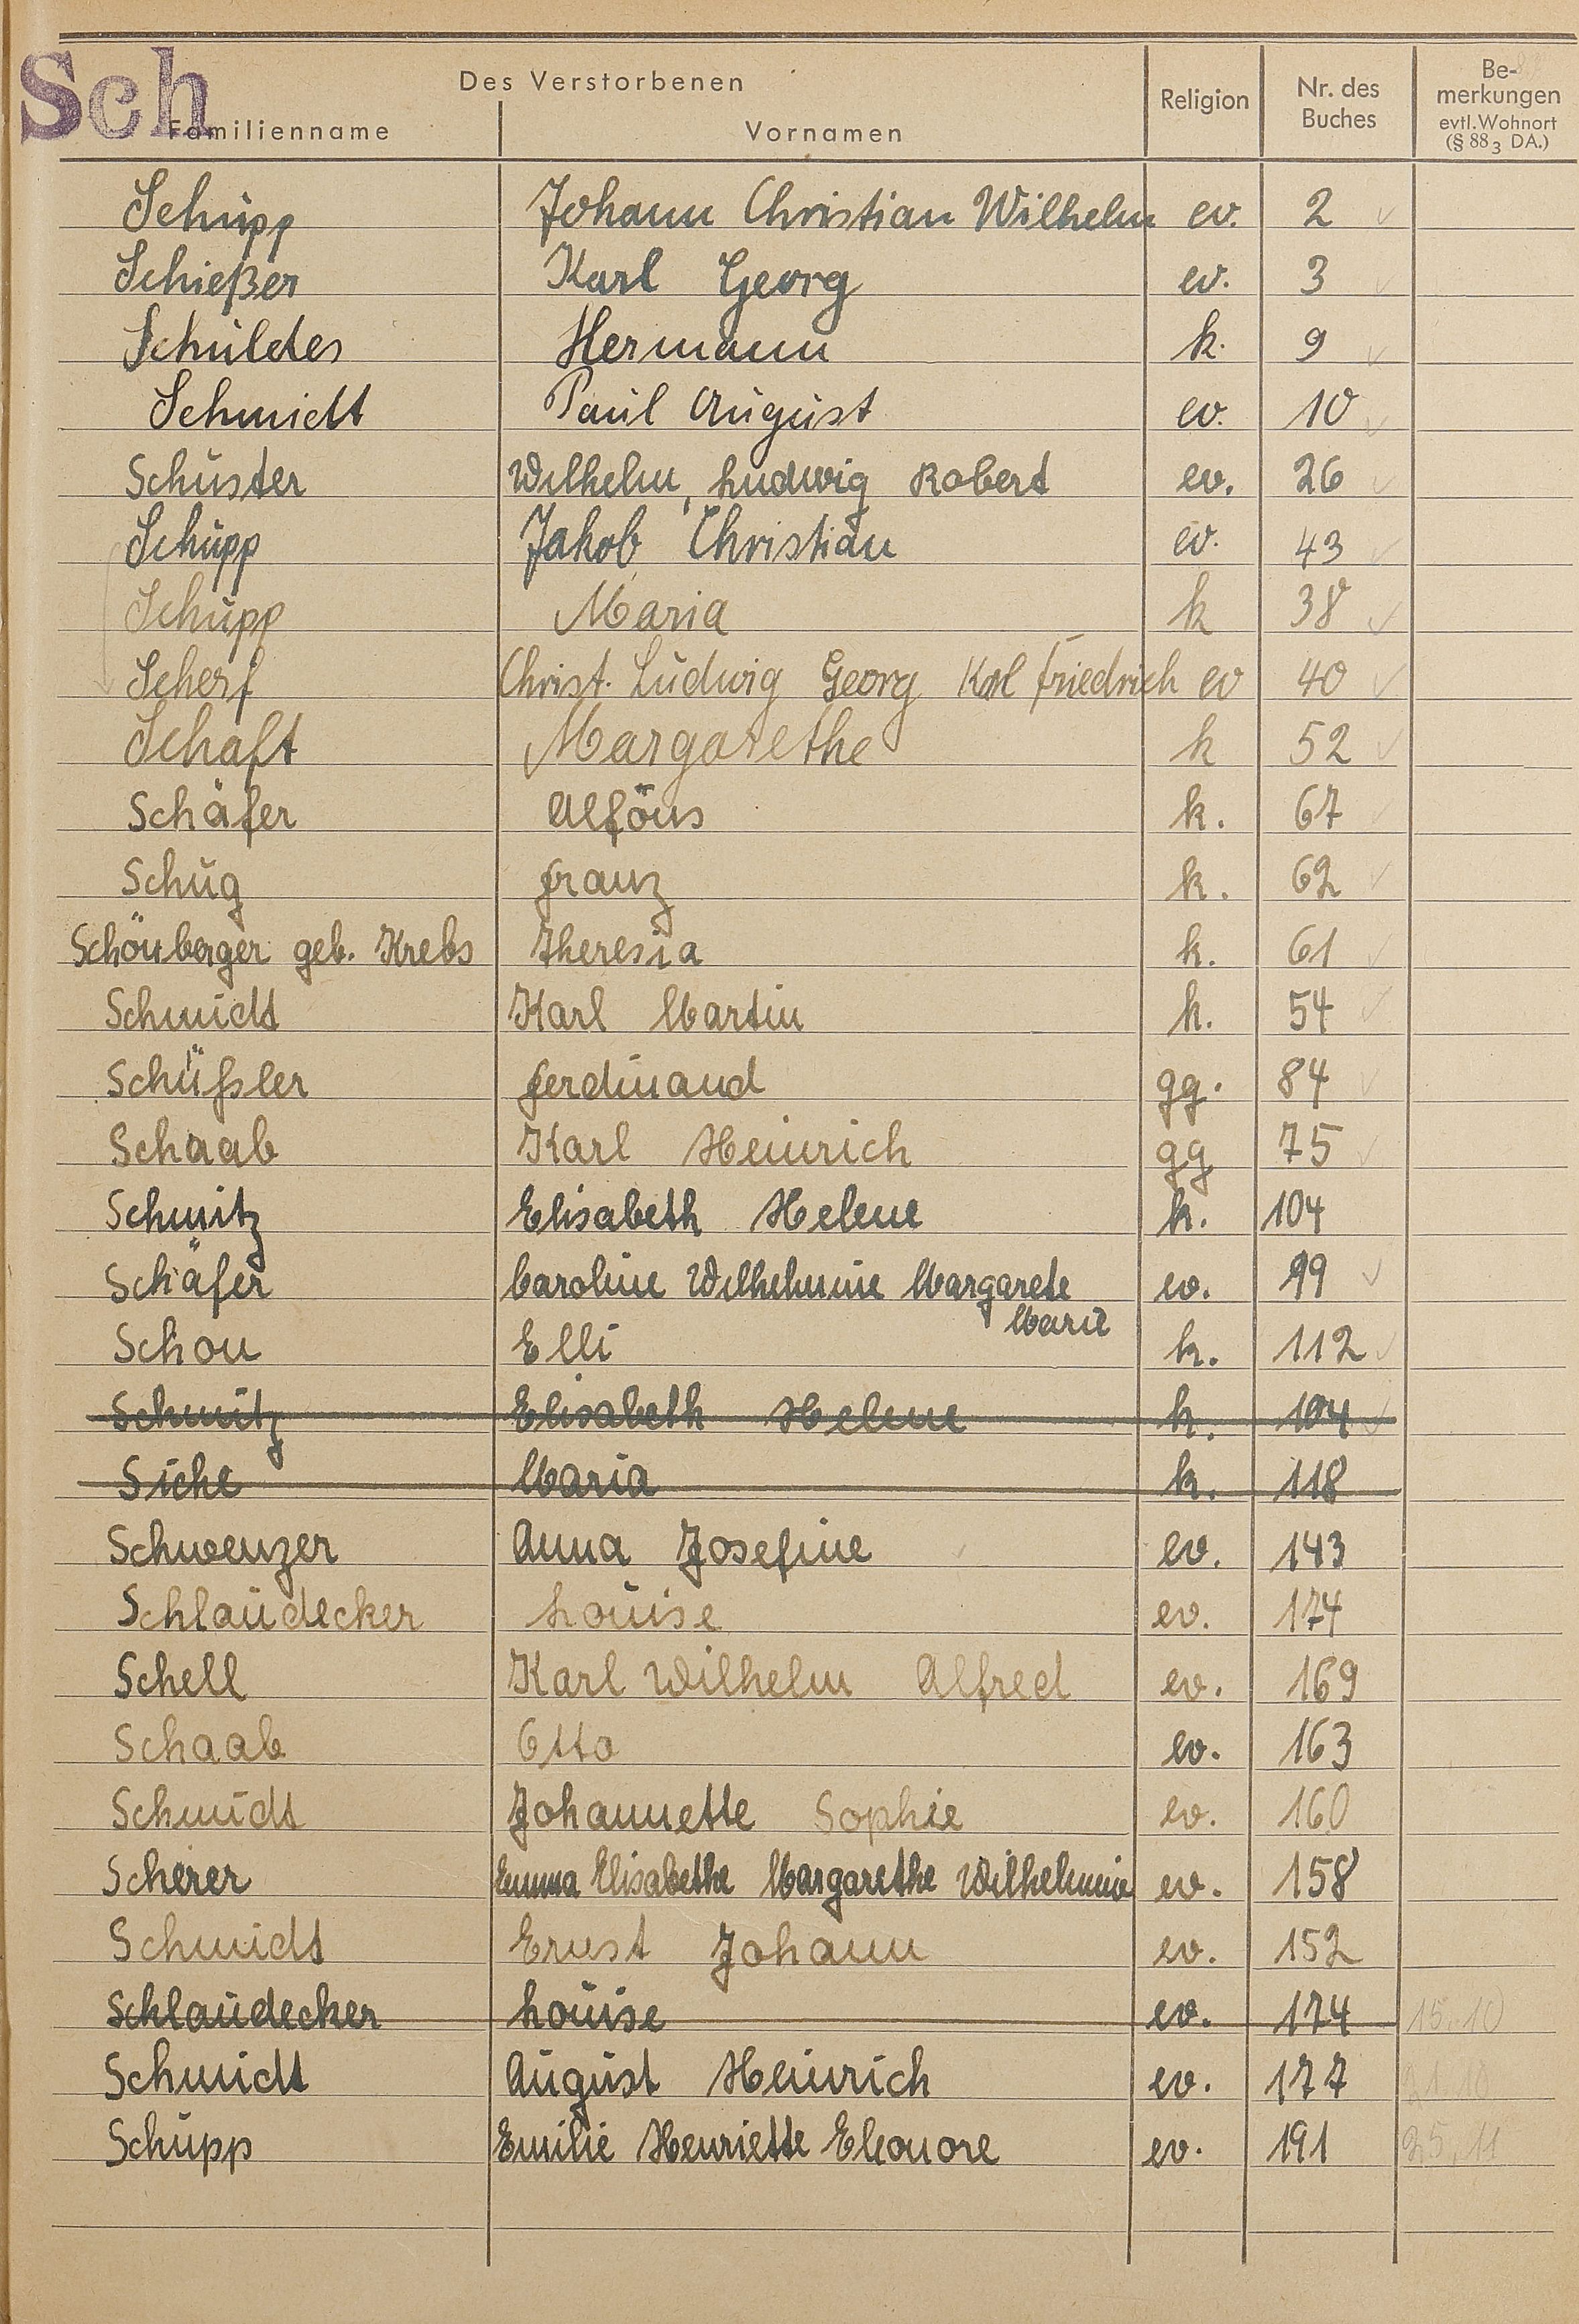 Sch
Des Verstorbenen
Familienname Vornamen Religion Nr. des Buches Be-merkungen evtl. Wohnort (§ 88 3 DA.)
Schupp Johann Christian Wilhelm ev. 2 ✓
Schießer Karl Georg ev. 3 ✓
Schuldes Hermann k. 9 ✓
Schmidt Paul August ev. 10 ✓
Schuster Wilhelm, Ludwig Robert ev. 26 ✓
Schupp Jakob Christian ev. 43 ✓
Schupp Maria k 38 ✓
Scherf Christ. Ludwig Georg Karl Friedrich ev 40 ✓
Schaft Margarethe k 52 ✓
Schäfer Alfons k. 67 ✓
Schug Franz k. 62 ✓
Schönberger geb. Krebs Theresia k. 61 ✓
Schmidt Karl Martin k. 54 ✓
Schüßler Ferdinand gg. 84 ✓
Schaab Karl Heinrich gg 75 ✓
Schmitz Elisabeth Helene k. 104
Schäfer Caroline Wilhelmine Margarete ev. 99 ✓
Marie
Schon Elli k. 112 ✓
Schmitz Elisabeth Helene k. 104 ✓
Siche Maria k. 118
Schwenzer Anna Josefine ev. 143
Schlaudecker Louise ev. 174
Schell Karl Wilhelm Alfred ev. 169
Schaab Otto ev. 163
Schmidt Johannette Sophie ev. 160
Scherer Emma Elisabethe Margarethe Wilhelmine ev. 158
Schmidt Ernst Johann ev. 152
Schlaudecker Louise ev. 174 15.10
Schmidt August Heinrich ev. 177 21.10
Schupp Emilie Henriette Eleonore ev. 191 25.11